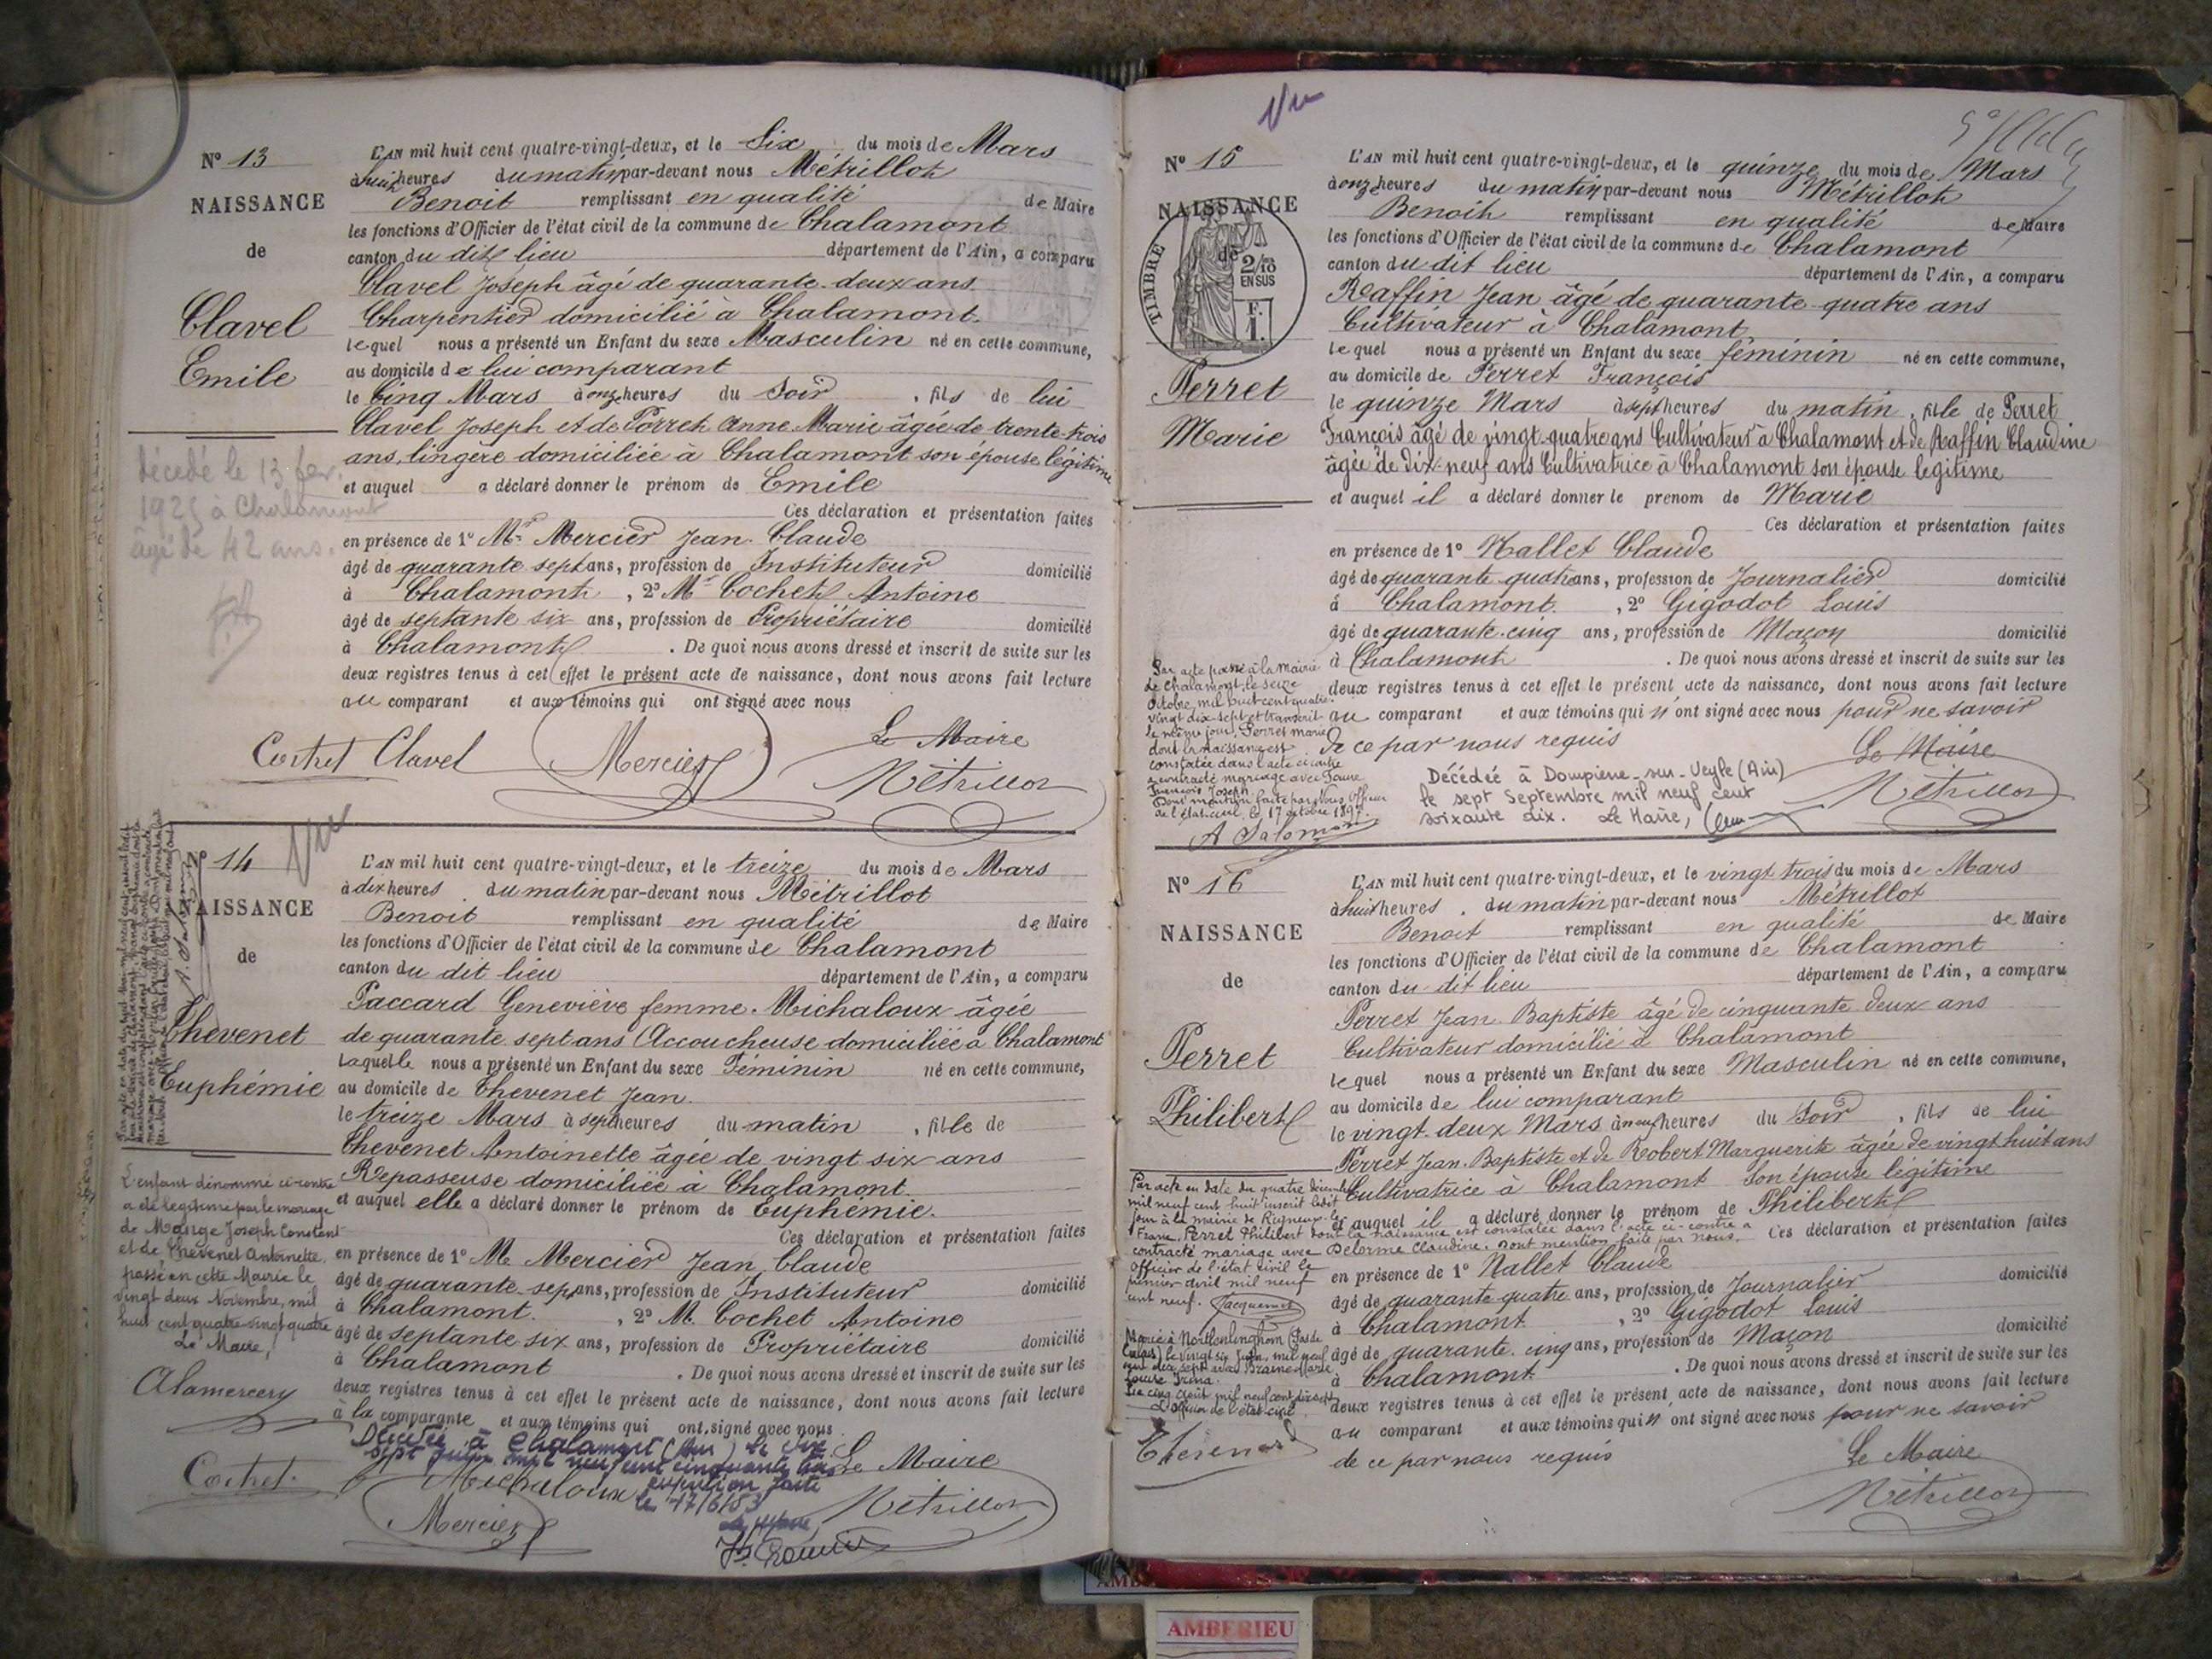 N° 13
NAISSANCE
de
Clavel
Emile
L'AN mil huit cent quatre-vingt-deux, et le Six du mois de Mars
à huit heures du matin par-devant nous Métrillot
Benoit remplissant en qualité de Maire
les fonctions d'Officier de l'état civil de la commune de Chalamont
canton du dit lieu département de l'Ain, a comparu
Clavel Joseph âgé de quarante-deux ans
Charpentier domicilié à Chalamont.
lequel nous a présenté un Enfant du sexe Masculin né en cette commune,
au domicile de lui comparant
le Cinq Mars à onze heures du Soir, fils de lui
Clavel Joseph et de Porret Anne Marie âgée de trente-trois
ans, lingère domiciliée à Chalamont son épouse légitime
et auquel a déclaré donner le prénom de Emile
Ces déclaration et présentation faites
en présence de 1° Mr Mercier Jean-Claude
âgé de quarante sept ans, profession de Instituteur domicilié
à Chalamont, 2° Mr Cochet Antoine
âgé de septante six ans, profession de Propriétaire domicilié
à Chalamont. De quoi nous avons dressé et inscrit de suite sur les
deux registres tenus à cet effet le présent acte de naissance, dont nous avons fait lecture
au comparant et aux témoins qui ont signé avec nous
Le Maire
Cochet Clavel Mercier Métrillot
décédé le 13 fev.
1925 à Chalamont
âgé de 42 ans.
N° 14
Vu
NAISSANCE
de
Chevenet
Euphémie
L'AN mil huit cent quatre-vingt-deux, et le treize du mois de Mars
à dix heures du matin par-devant nous Métrillot
Benoit remplissant en qualité de Maire
les fonctions d'Officier de l'état civil de la commune de Chalamont
canton du dit lieu département de l'Ain, a comparu
Paccard Geneviève femme Michaloux âgée
de quarante sept ans Accoucheuse domiciliée à Chalamont
laquelle nous a présenté un Enfant du sexe Féminin né en cette commune,
au domicile de Chevenet Jean.
le treize Mars à sept heures du matin, fille de
Chevenet Antoinette âgée de vingt six ans
Repasseuse domiciliée à Chalamont.
et auquel elle a déclaré donner le prénom de Euphémie.
Ces déclaration et présentation faites
en présence de 1° M. Mercier Jean Claude
âgé de quarante sept ans, profession de Instituteur domicilié
à Chalamont., 2° M. Cochet Antoine
âgé de septante six ans, profession de Propriétaire domicilié
à Chalamont. De quoi nous avons dressé et inscrit de suite sur les
deux registres tenus à cet effet le présent acte de naissance, dont nous avons fait lecture
à la comparante et aux témoins qui ont signé avec nous
Décédée à Chalamont (Ain) le dix
sept juin mil neuf cent cinquante trois
expédition faite
le 17/6/53
Le Maire
Cochet Michaloux Mercier Métrillot
L'enfant dénommé ci-contre
a été légitimé par le mariage
de Mange Joseph Constant
et de Chevenet Antoinette,
passé en cette Mairie le
vingt deux Novembre, mil
huit cent quatre-vingt quatre
Le Maire,
Alamercery
Vu
N° 15
NAISSANCE
de
TIMBRE
2/10
EN SUS
F.
1.
Perret
Marie
L'AN mil huit cent quatre-vingt-deux, et le quinze du mois de Mars
à onze heures du matin par-devant nous Métrillot
Benoit remplissant en qualité de Maire
les fonctions d'Officier de l'état civil de la commune de Chalamont
canton du dit lieu département de l'Ain, a comparu
Raffin Jean âgé de quarante-quatre ans
Cultivateur à Chalamont
lequel nous a présenté un Enfant du sexe féminin né en cette commune,
au domicile de Perret François
le quinze Mars à sept heures du matin, fille de Perret
François âgé de vingt-quatre ans Cultivateur à Chalamont et de Raffin Claudine
âgée de Dix-neuf ans Cultivatrice à Chalamont son épouse légitime
et auquel il a déclaré donner le prenom de Marie
Ces déclaration et présentation faites
en présence de 1° Nallet Claude
âgé de quarante quatre ans, profession de Journalier domicilié
à Chalamont., 2° Gigodot Louis
âgé de quarante-cinq ans, profession de Maçon domicilié
à Chalamont. De quoi nous avons dressé et inscrit de suite sur les
deux registres tenus à cet effet le présent acte de naissance, dont nous avons fait lecture
au comparant et aux témoins qui n'ont signé avec nous pour ne savoir
de ce par nous requis
Le Maire
Métrillot
Par acte passé à la mairie
de Chalamont, le seize
octobre, mil huit cent quatre-
vingt dix-sept et transcrit
le même jour, Perret Marie
dont la naissance est
constatée dans l'acte ci contre
a contracté mariage avec
François Joseph.
Dont mention faite par Nous Officier
de l'état-civil, le 17 octobre 1897.
A Salomon
Décédée à Dompierre-sur-Veyle (Ain)
le sept Septembre mil neuf cent
soixante dix. Le Maire,
N° 16
NAISSANCE
de
Perret
Philibert
L'AN mil huit cent quatre-vingt-deux, et le vingt trois du mois de Mars
à huit heures du matin par-devant nous Métrillot
Benoit remplissant en qualité de Maire
les fonctions d'Officier de l'état civil de la commune de Chalamont
canton du dit lieu département de l'Ain, a comparu
Perret Jean-Baptiste âgé de cinquante deux ans
Cultivateur domicilié à Chalamont
lequel nous a présenté un Enfant du sexe Masculin né en cette commune,
au domicile de lui comparant
le vingt-deux Mars à neuf heures du Soir, fils de lui
Perret Jean-Baptiste et de Robert Marguerite âgée de vingt huit ans
Cultivatrice à Chalamont Son épouse légitime
et auquel il a déclaré donner le prénom de Philibert
Ces déclaration et présentation faites
en présence de 1° Nallet Claude
âgé de quarante quatre ans, profession de Journalier domicilié
à Chalamont, 2° Gigodot Louis
âgé de quarante-cinq ans, profession de Maçon domicilié
à Chalamont. De quoi nous avons dressé et inscrit de suite sur les
deux registres tenus à cet effet le présent acte de naissance, dont nous avons fait lecture
au comparant et aux témoins qui n'ont signé avec nous pour ne savoir
de ce par nous requis
Le Maire
Métrillot
Par acte en date du quatre décembre
mil neuf cent huit inscrit ledit
jour à la mairie de Rigneux-le-
Franc, Perret Philibert dont la naissance est constatée dans l'acte ci-contre a
contracté mariage avec Delorme Claudine. Dont mention faite par nous,
Officier de l'état civil le
premier avril mil neuf
cent neuf. Jacquemet
Le cinq août mil neuf cent dix sept
L'officier de l'état civil
Thévenard
AMBERIEU